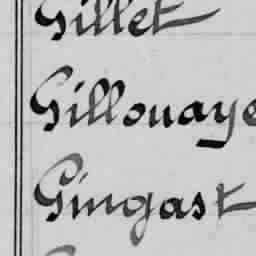 Gillet
Gillouaye
Gingast